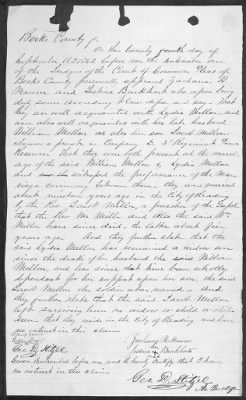 Berks County ss.
On this twenty fourth day of
September A.D. 1862 before me the subscriber one
of the Judges of the Court of Common Pleas of
Berks County personally appeared Zachariah
Maurer and who upon being
duly sworn according to law depose and say That
they are well acquainted with Lydia Mellon and
was also well acquainted with her late husband
William Mellon as also her son Jacob Mellon
a private in Company 3 Regiment Penna
Reserves That they were both present at the marri-
age of the said William Mellon & Lydia Mellon
and witnessed the performance of the mar-
riage ceremony between them they were married
about years ago in the City of Reading
by the Rev. Jacob Miller, a preacher of the Gospel
that the Rev. Mr. Miller and also the said Wm
Mellon have since died the latter about five
years ago And they further state that the
said Lydia Mellon has remained a widow ever
since the death of her husband the said William
Mellon, and has since that time been wholly
dependent for her support upon her son, the said
Jacob Mellon the soldier above named And
they further state that the said Jacob Mellon
left surviving him no widow or child or chil-
dren that they reside in the City of Reading & have
no interest in the claim
Zachariah Maurer
Geo. D. Stitzel
Sworn & subscribed before me and I hereby Certify that I have
no interest in the claim
Geo. D. Stitzel
As. Judge